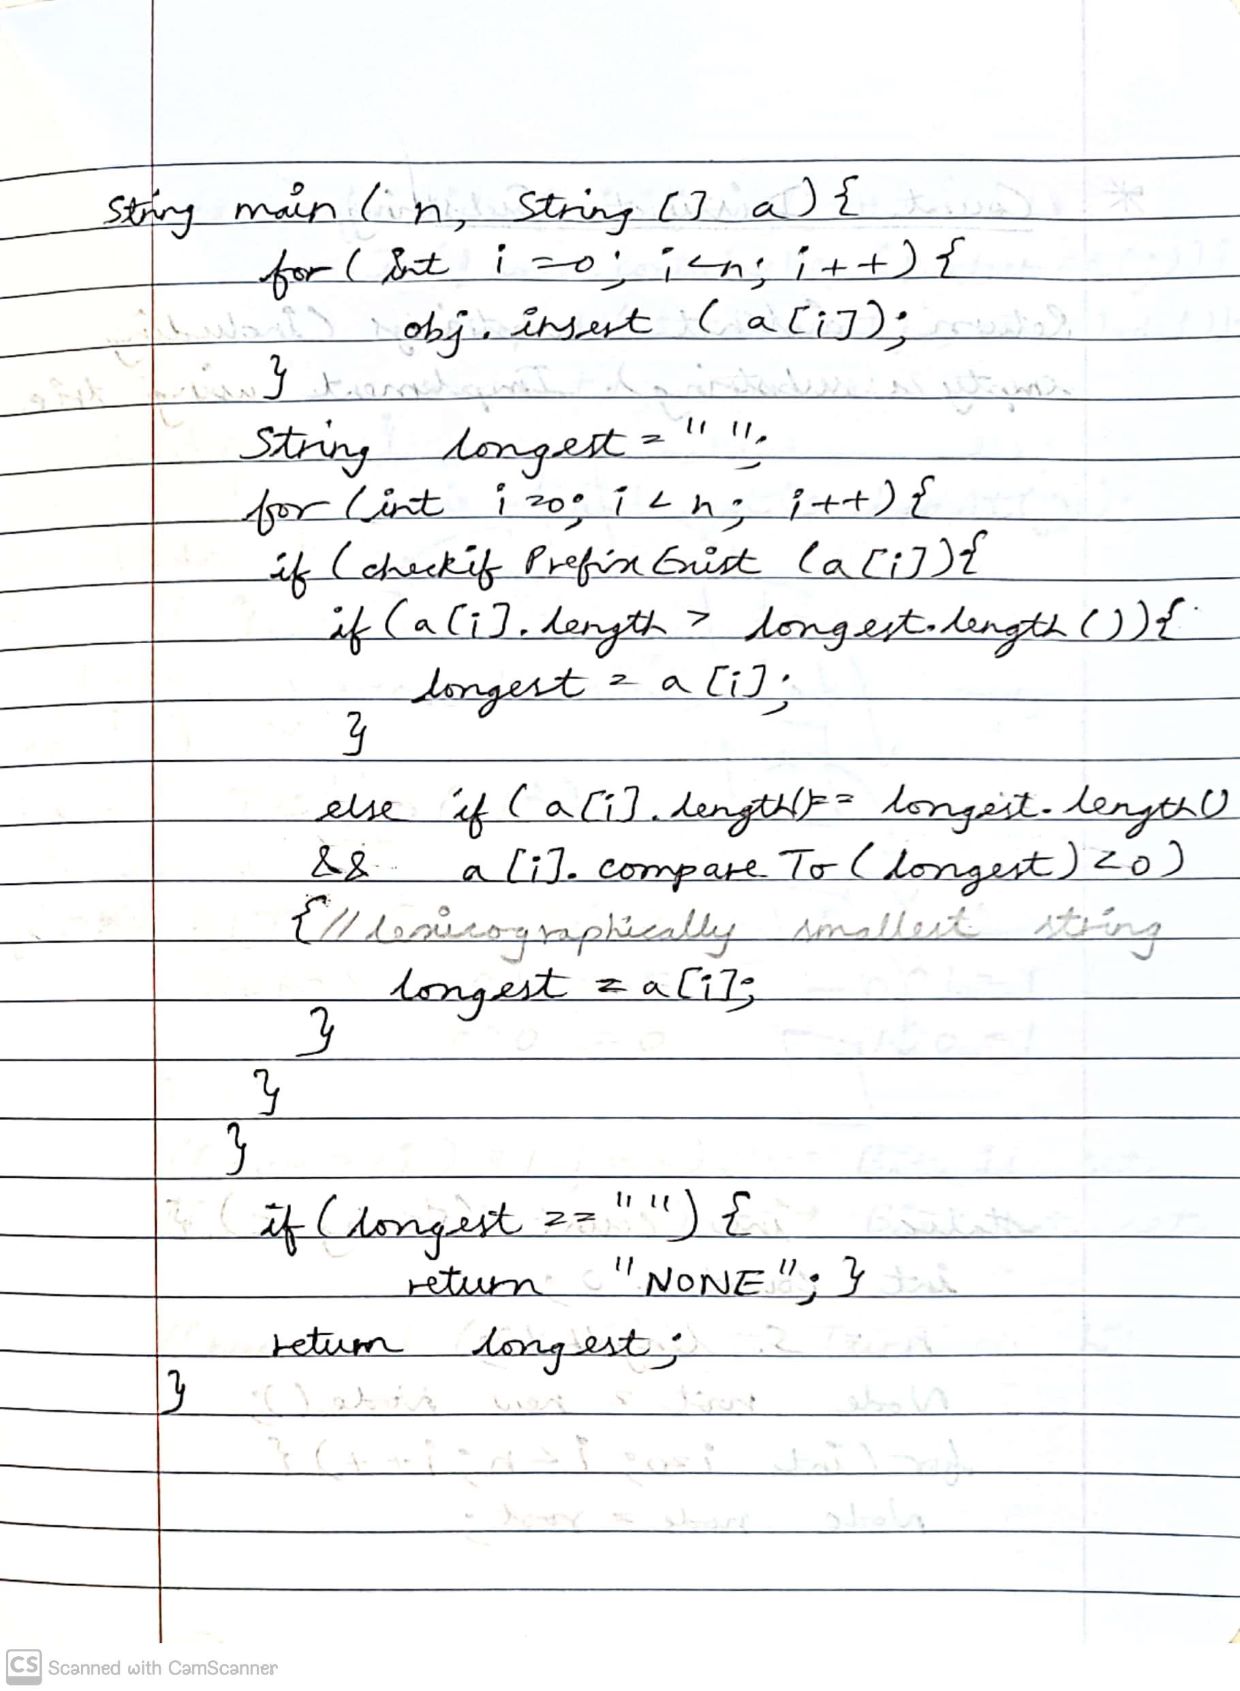 String main ( n, String [] a) {
for ( int i =0; i<n; i++) {
obj. insert ( a[i]);
}
String longest = " ";
for (int i=0; i < n; i++) {
if (checkif Prefix Exist (a[i]) {
if (a[i]. length > longest.length ()) {
longest = a [i];
}
else if ( a[i]. length() == longest. length()
&& a [i]. compare To ( longest) <0)
{ // lexicographically smallest string
longest = a[i];
}
}
}
if ( longest == " ") {
return "NONE"; }
return longest;
}
CS Scanned with CamScanner